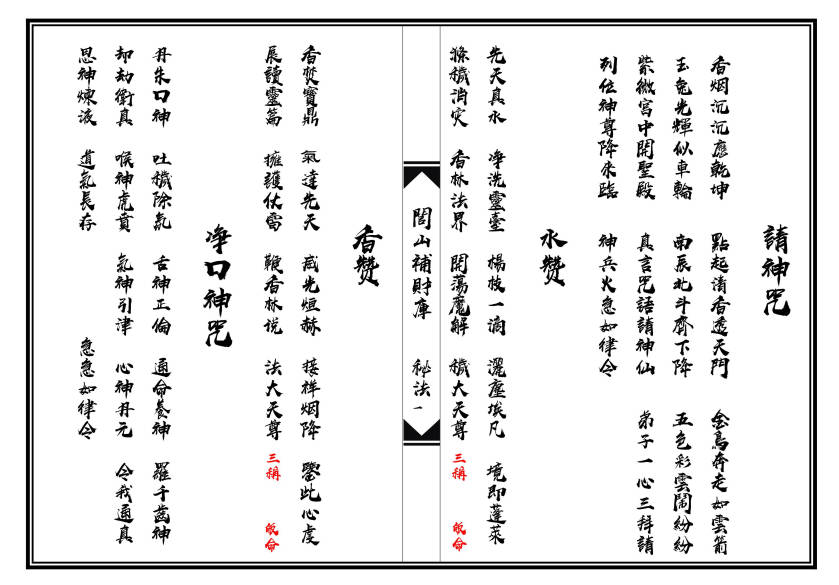 請神咒
香烟沉沉應乾坤　點起清香透天門　金烏奔走如雲箭
玉兔光輝似車輪　南辰北斗齊下降　五色彩雲鬧紛紛
紫微宮中開聖殿　真言咒語請神仙　弟子一心三拜請
列位神尊降來臨　神兵火急如律令
水赞
先天真水　净洗靈臺　楊枝一滴　灑塵埃凡　境即蓬萊
滌穢消灾　香林法界　開蕩魔解　穢大天尊　三稱　皈命
閭山補財庫　秘法一
香赞
香焚寶鼎　氣達先天　威光烜赫　接祥烟降　鑒此心虔
展讀靈篇　擁護仗雷　鞭香林説　法大天尊　三稱　皈命
净口神咒
丹朱口神　吐穢除氣　舌神正倫　通命養神　羅千齒神
却劫衛真　喉神虎賁　氣神引津　心神丹元　令我通真
思神煉液　道氣長存　急急如律令